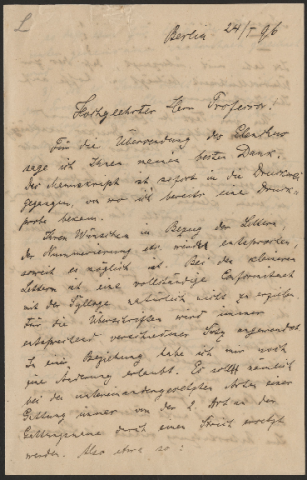 Berlin 24/I 96
Hochgeehrter Herr Professor!
Für die Übersendung des
sage ich Ihnen meinen besten Dank.
Das Manuskript ist sofort in die Druckerei
gegangen, von wo ich bereits eine Druck-
probe bekam.
Ihren Wünschen in Bezug der Lettern,
der Nummerierung etc. würde entsprochen,
soweit es möglich ist. Bei den kleineren
Lettern ist eine vollständige Conformität
mit der natürlich nicht zu erzielen.
Für die Überschriften wird immer
entsprechend verschiedener Satz angewendet.
In einer Beziehung habe ich mir noch
eine Änderung erlaubt. Es sollte nämlich
bei den untereinandergesetzten Arten einer
Gattung immer von der 2. Art an der
Gattungsname durch einen Strich ersetzt
werden. Also etwa so: